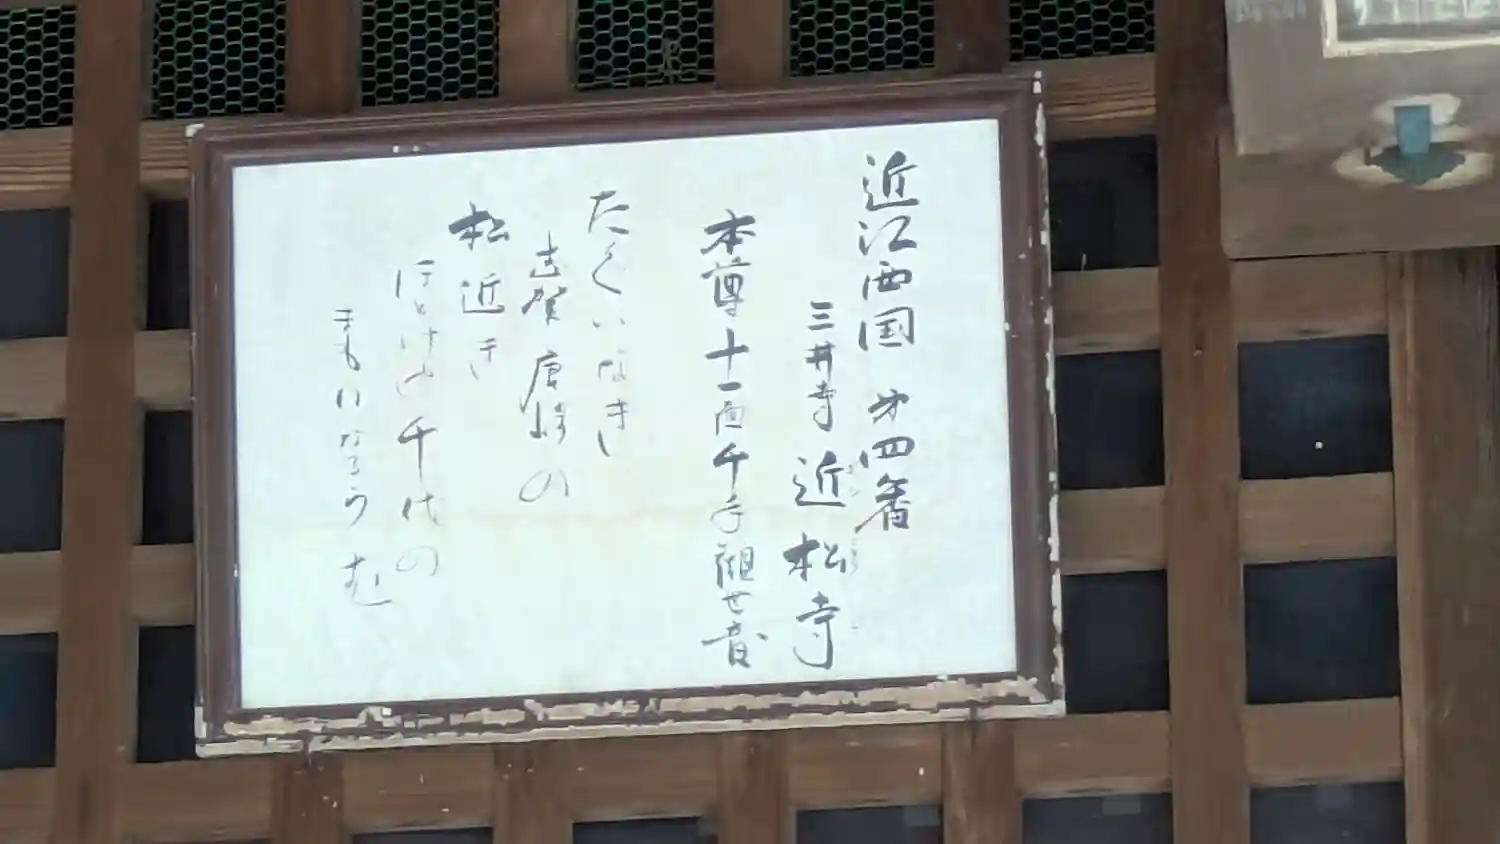 近江西国 第四番
三井寺 近松寺
本尊十一面千手観世音
たぐいなき
志賀唐崎の
松近き
ほとけの千代の
まもりなるらむ